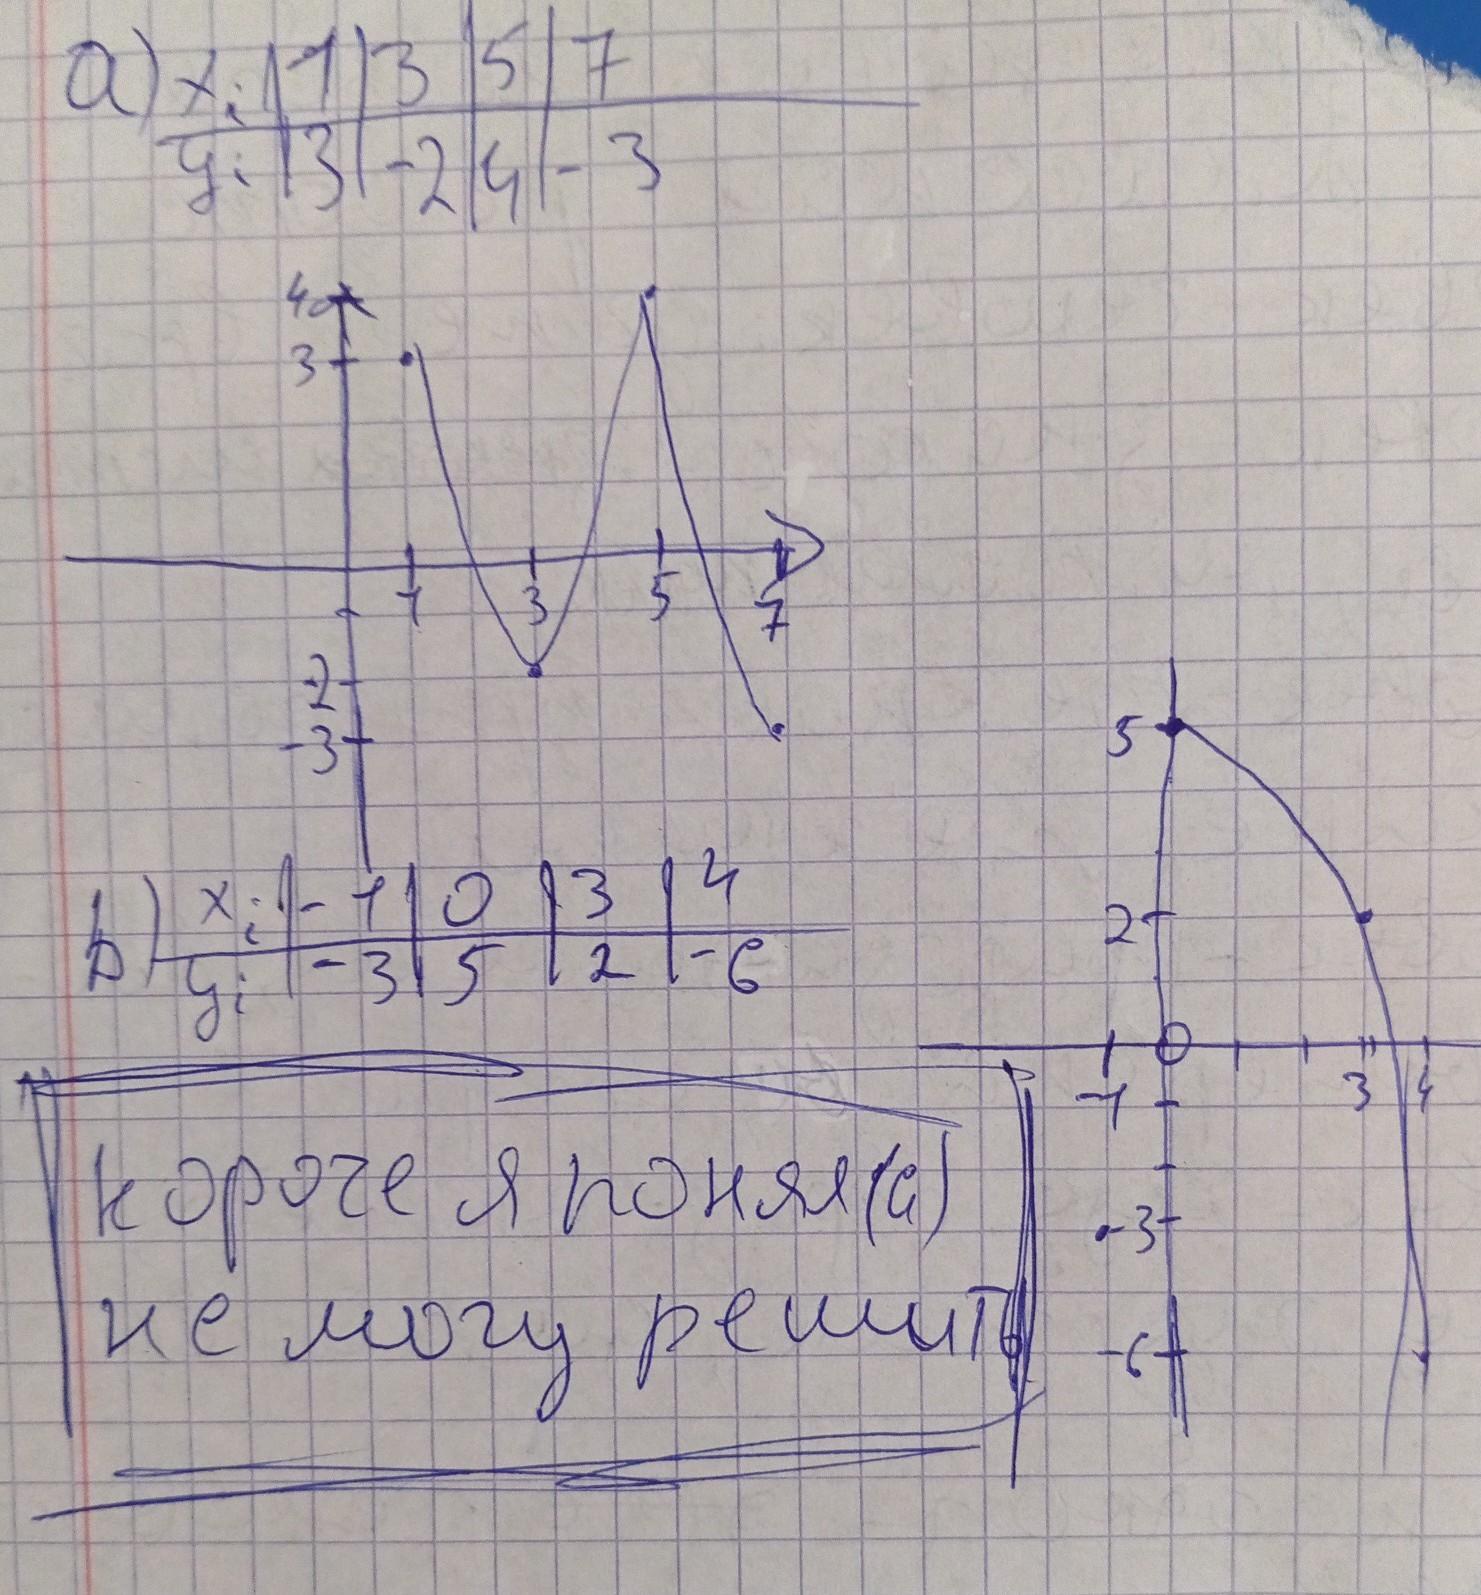 a) xi | 1 | 3 | 5 | 7
yi | 3 | -2 | 4 | -3
4
3
1 3 5 7
-2
-3
5
b) xi | -1 | 0 | 3 | 4
yi | -3 | 5 | 2 | -6
2
0
-1 3 4
-3
-6
короче я понял(а)
не могу решить